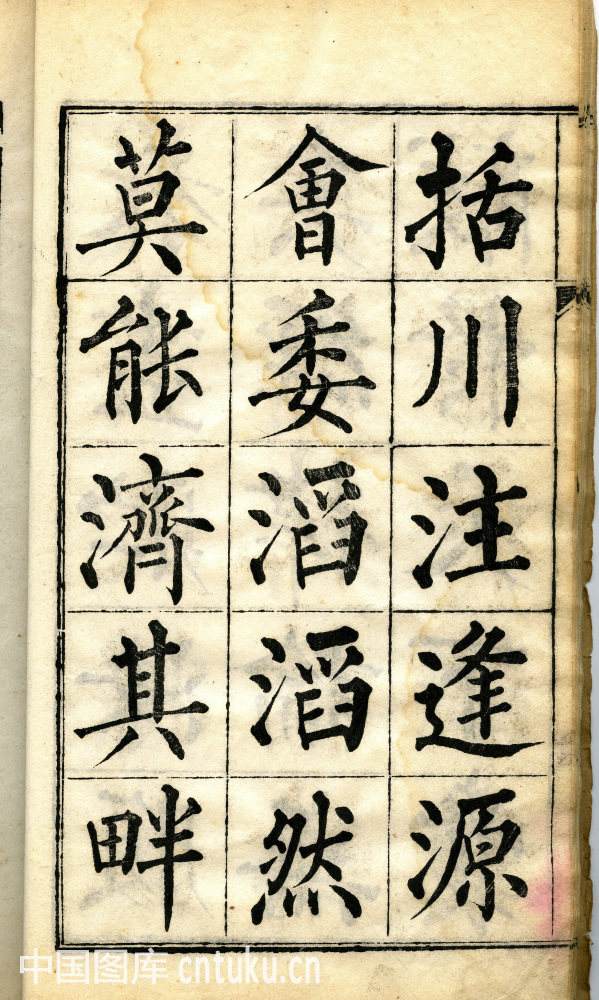 括川注逢源
會委滔滔然
莫能濟其畔
中国图库 cntuku.cn